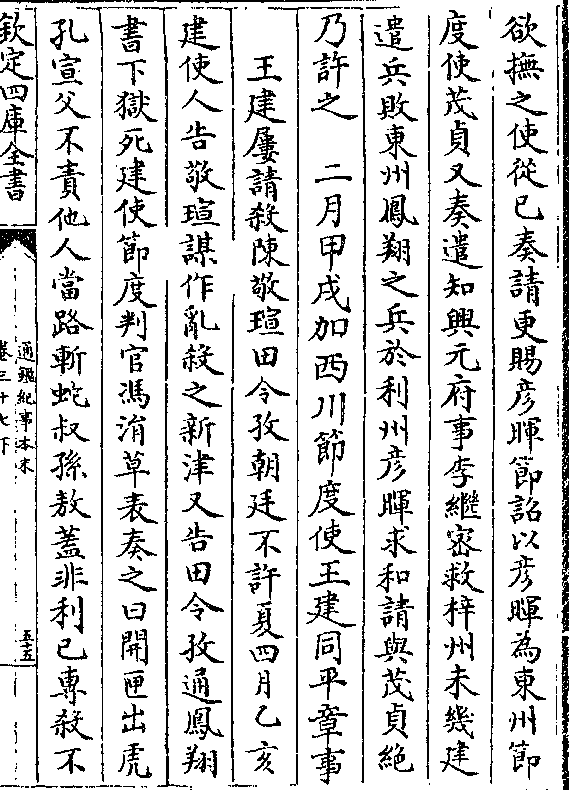 欲撫之使從已奏請更賜彦暉節詔以彦暉為東川節
度使茂貞又奏遣知興元府事李繼密救梓州未幾建
遣兵敗東州鳳翔之兵於利州彦暉求和請與茂貞絶
乃許之　二月甲戌加西川節度使王建同平章事
王建屢請殺陳敬瑄田令孜朝廷不許夏四月乙亥
建使人告敬瑄謀作亂殺之新津又告田令孜通鳳翔
書下獄死建使節度判官馮涓草表奏之曰開匣出虎
孔宣父不責他人當路斬蛇叔孫敖蓋非利已專殺不
欽定四庫全書
通鑑紀事本末
卷三十七下
五十五